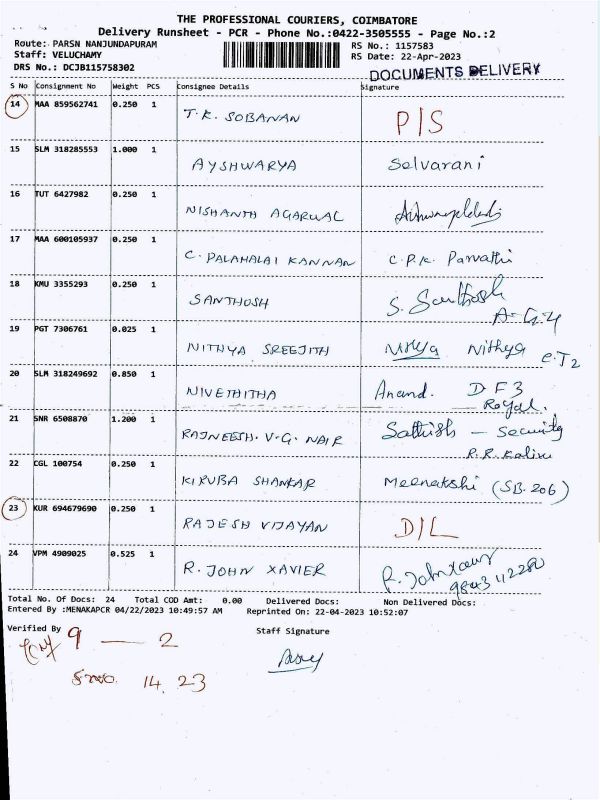 THE PROFESSIONAL COURIERS, COIMBATORE
Delivery Runsheet - PCR - Phone No.:0422-3505555 - Page No.:2
Route: PARSN NANJUNDAPURAM RS No.: 1157583
Staff: VELUCHAMY RS Date: 22-Apr-2023
DRS No.: DCJB115758302 DOCUMENTS DELIVERY
S No Consignment No Weight PCS Consignee Details Signature
14 MAA 859562741 0.250 1 T.K. SOBANAN P/S
15 SLM 318285553 1.000 1 AYSHWARYA Selvarani
16 TUT 6427982 0.250 1 NISHANTH AGARWAL
17 MAA 600105937 0.250 1 C. PALAHALAI KANNAN C.P.K. Parvathi
18 KMU 3355293 0.250 1 SANTHOSH S. Santhosh
A-G-4
19 PGT 7306761 0.025 1 NITHYA SREEJITH Nithya Nithya C.T2
20 SLM 318249692 0.850 1 NIVETHITHA Anand. D F3
Royal.
21 SNR 6508870 1.200 1 RAJNEESH. V.G. NAIR Sathish - Security
R.R.
22 CGL 100754 0.250 1 KIRUBA SHANKAR Meenakshi (SB.206)
23 KUR 694679690 0.250 1 RAJESH VIJAYAN D/L
24 VPM 4909025 0.525 1 R. JOHN XAVIER R. John Xavier
Total No. Of Docs: 24 Total COD Amt: 0.00 Delivered Docs: Non Delivered Docs:
Entered By :MENAKAPCR 04/22/2023 10:49:57 AM Reprinted On: 22-04-2023 10:52:07
Verified By Staff Signature
9 — 2
S.no. 14, 23